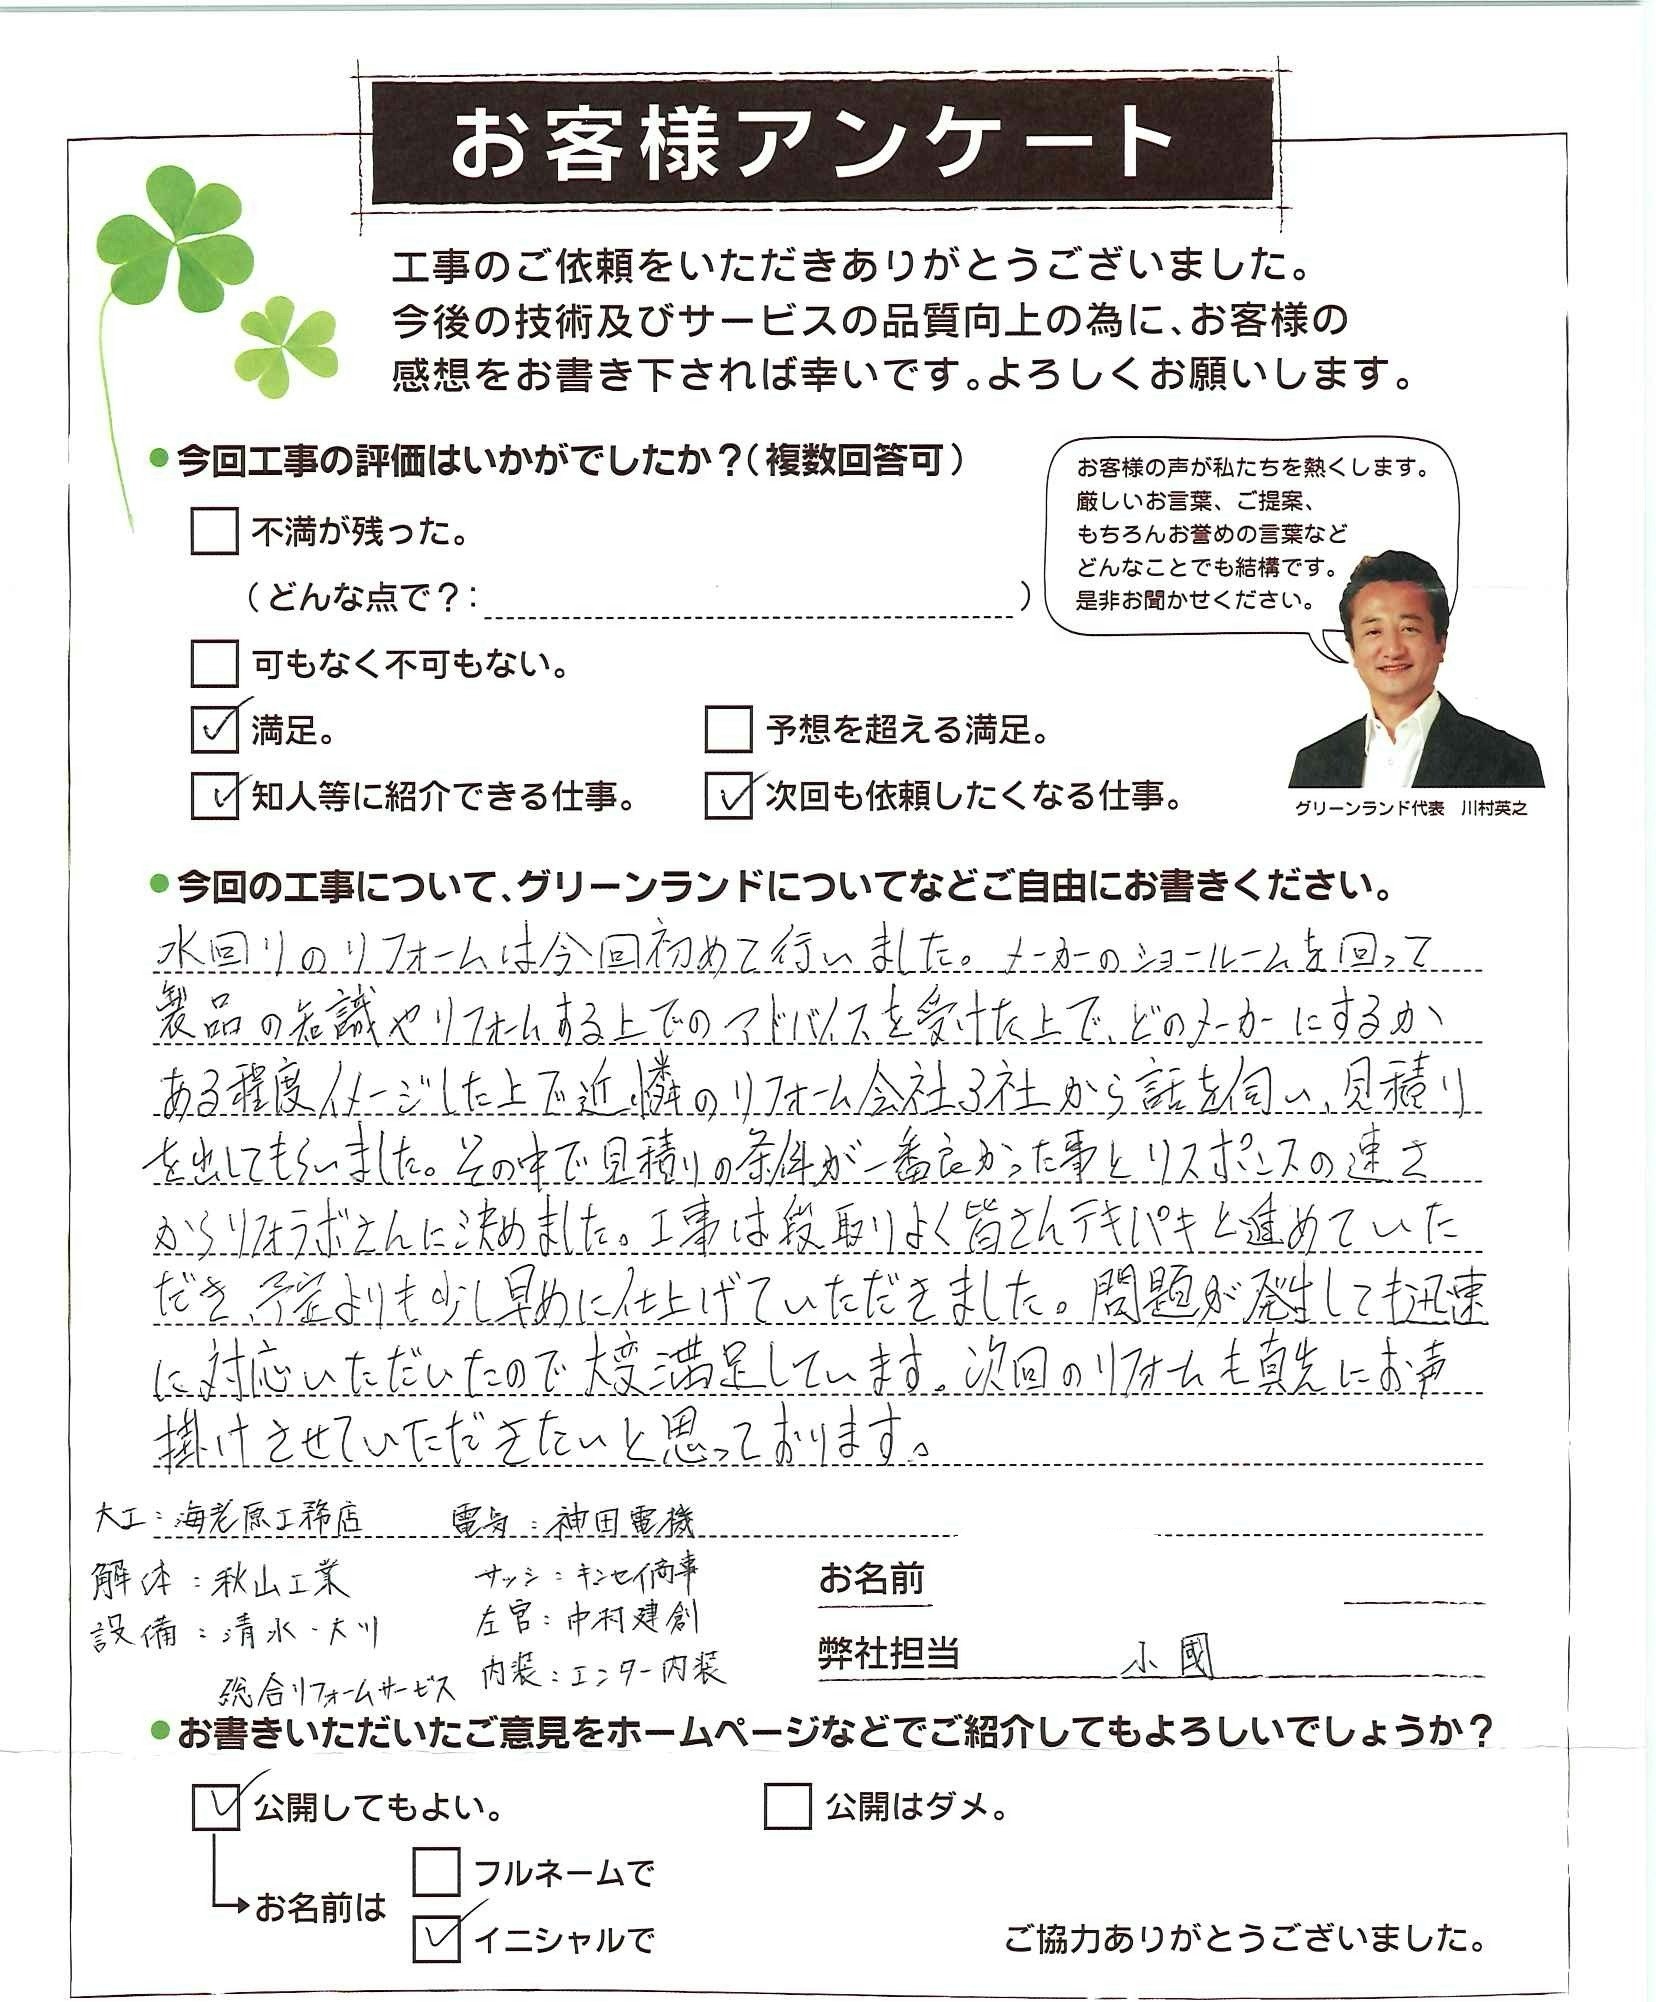 お客様アンケート
工事のご依頼をいただきありがとうございました。
今後の技術及びサービスの品質向上の為に、お客様の
感想をお書き下されば幸いです。よろしくお願いします。
今回工事の評価はいかがでしたか？(複数回答可)
不満が残った。
(どんな点で？: )
可もなく不可もない。
満足。
予想を超える満足。
知人等に紹介できる仕事。
次回も依頼したくなる仕事。
お客様の声が私たちを熱くします。
厳しいお言葉、ご提案、
もちろんお誉めの言葉など
どんなことでも結構です。
是非お聞かせください。
グリーンランド代表 川村英之
今回の工事について、グリーンランドについてなどご自由にお書きください。
水回りのリフォームは今回初めて行いました。メーカーのショールームを回って
製品の知識やリフォームする上でのアドバイスを受けた上で、どのメーカーにするか
ある程度イメージした上で近隣のリフォーム会社3社から話を伺い、見積り
を出してもらいました。その中で見積りの条件が一番良かった事とリスポンスの速さ
からリフォラボさんに決めました。工事は段取りよく皆さんテキパキと進めていた
だき、予定よりも少し早めに仕上げていただきました。問題が発生しても迅速
に対応いただいたので大変満足しています。次回のリフォームも真先にお声
掛けさせていただきたいと思っております。
大工：海老原工務店 電気：神田電機
解体：秋山工業 サッシ：キンセイ商事
設備：清水・大川 左官：中村建創
総合リフォームサービス 内装：エンター内装
お名前
弊社担当 小國
お書きいただいたご意見をホームページなどでご紹介してもよろしいでしょうか？
公開してもよい。
公開はダメ。
お名前は
フルネームで
イニシャルで
ご協力ありがとうございました。